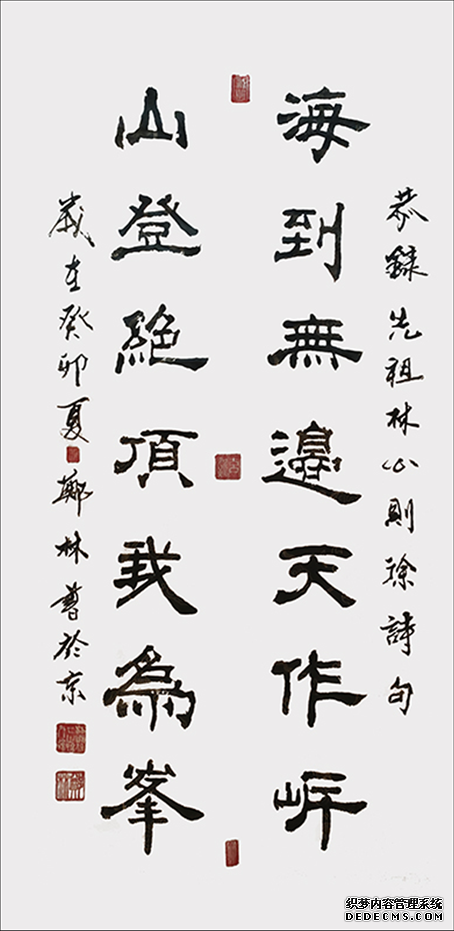 恭錄先祖林公則徐詩句
海到無邊天作岸
山登絶頂我為峯
歲在癸卯夏鄭林書於京
织梦内容管理系统
DEDECMS.COM